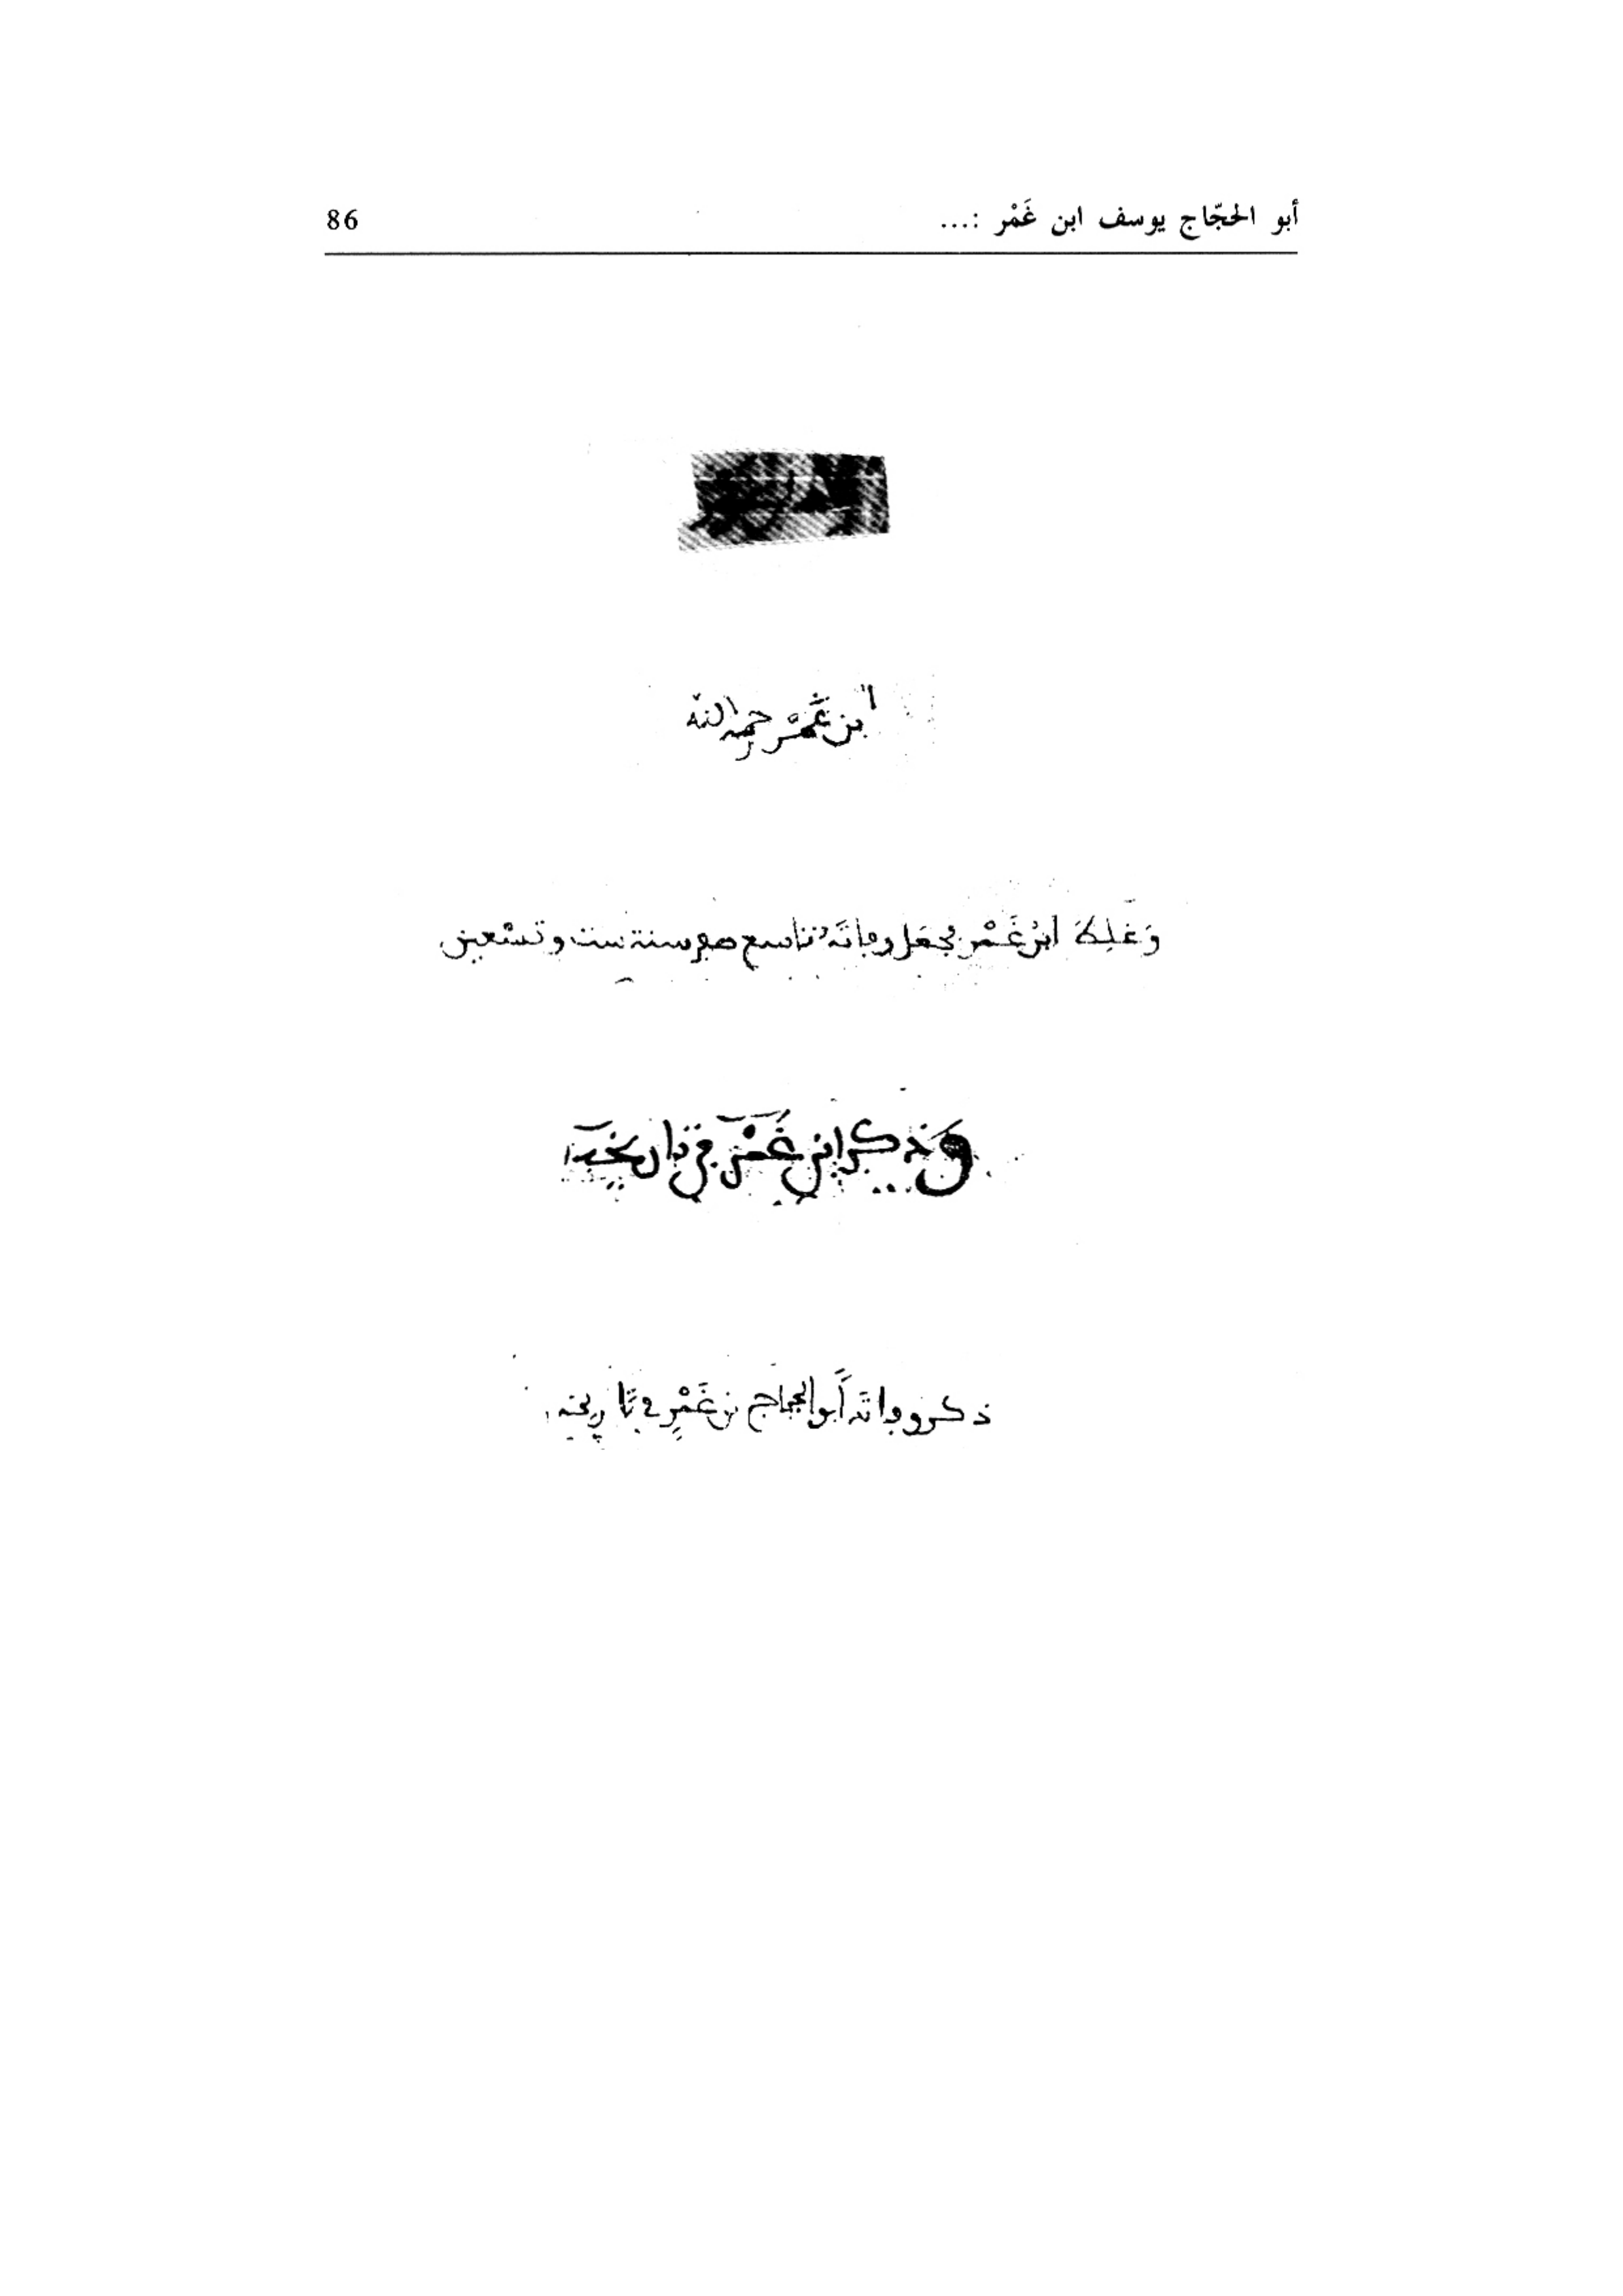 أبو الحجّاج يوسف ابن غَمْر :...
86
ابن غَمْر رحمه الله
وَغَلِطَ ابنُ غَمْر فجعَل وفاتَهُ تاسع صفر سنة ست وتسْعين
وَذكر ابن غَمْر في تاريخه
ذكر وفاته أبو الحجاج بن غَمْرٍ في تَاريخه